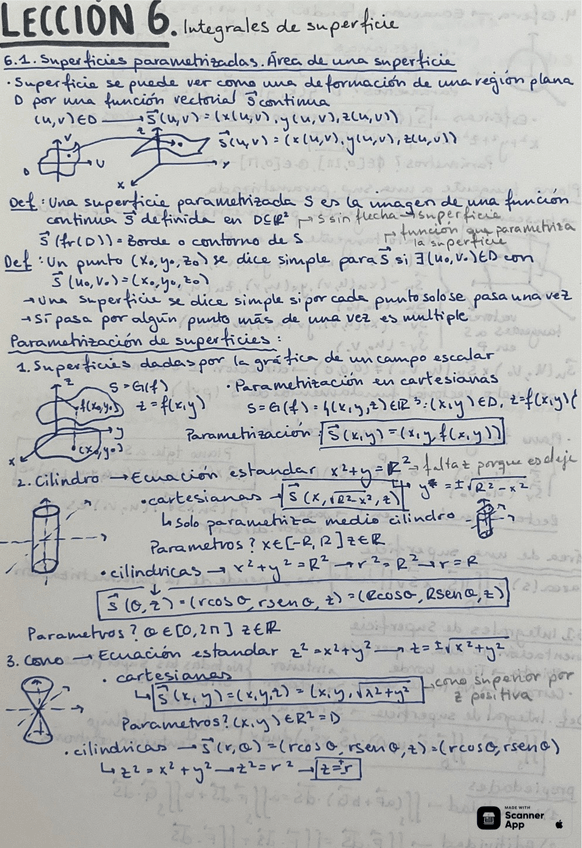 LECCIÓN 6. Integrales de superficie
6.1. Superficies parametrizadas. Área de una superficie
· Superficie se puede ver como una deformación de una región plana
D por una función vectorial S⃗ continua
(u,v)∈D → S⃗(u,v) = (x(u,v), y(u,v), z(u,v))
S⃗(u,v) = (x(u,v), y(u,v), z(u,v))
v
z
D
u
y
x
Def: Una superficie parametrizada S es la imagen de una función
continua S⃗ definida en D⊆ℝ² → S sin flecha → superficie
S⃗(fr(D)) = Borde o contorno de S
→ función que parametriza
la superficie
Def: Un punto (x₀,y₀,z₀) se dice simple para S⃗ si ∃(u₀,v₀)∈D con
S⃗(u₀,v₀) = (x₀,y₀,z₀)
→ Una superficie se dice simple si por cada punto solo se pasa una vez
→ Si pasa por algún punto más de una vez es multiple
Parametrización de superficies:
1. Superficies dadas por la gráfica de un campo escalar
z
S = G(f)
· Parametrización en cartesianas
f(x₀,y₀)
z = f(x,y)
S = G(f) = {(x,y,z)∈ℝ³: (x,y)∈D, z=f(x,y)}
y
x
(x₀,y₀)
Parametrización: S⃗(x,y) = (x,y,f(x,y))
2. Cilindro → Ecuación estandar x²+y² = R² → falta z porque es de eje z
· cartesianas → S⃗(x, √R²-x², z)
y = ±√R²-x²
↳ Solo parametriza medio cilindro
Parametros? x∈[-R,R] z∈ℝ
· cilindricas → x²+y² = R² → r² = R² → r = R
S⃗(θ,z) = (rcosθ, rsenθ, z) = (Rcosθ, Rsenθ, z)
Parametros? θ∈[0,2π] z∈ℝ
3. Cono → Ecuación estandar z² = x²+y² → z = ±√x²+y²
· cartesianas
↳ S⃗(x,y) = (x,y,z) = (x,y,√x²+y² → cono superior por
z positiva
Parametros? (x,y)∈ℝ² = D
· cilindricas → S⃗(r,θ) = (rcosθ, rsenθ, z) = (rcosθ, rsenθ)
↳ z² = x²+y² → z² = r² → z = ±r
MADE WITH
Scanner
App